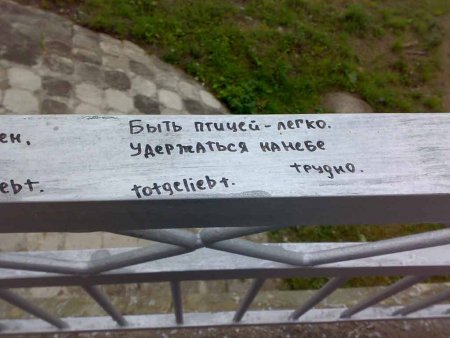 Быть птицей - легко.
ен,
Удержаться на небе
трудно.
ebt.
totgeliebt.